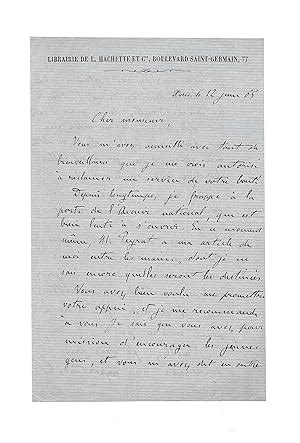 LIBRAIRIE DE L. HACHETTE ET Cie, BOULEVARD SAINT-GERMAIN, 77
Paris, le 12 juin 65
Cher monsieur,
Vous m'avez accueilli avec tant de
bienveillance que je me crois autorisé
à réclamer un service de votre bonté.
Depuis longtemps, je frappe à la
porte de l'Avenir national, qui est
bien lente à s'ouvrir. En ce moment
même, M. Peyrat a un article de
moi entre les mains, dont je ne
sais encore quelles seront les destinées
Vous avez bien voulu me promettre
votre appui, et je me recommande
à vous. Je sais que vous avez pour
mission d'encourager les jeunes
gens, et vous m'avez dit en outre